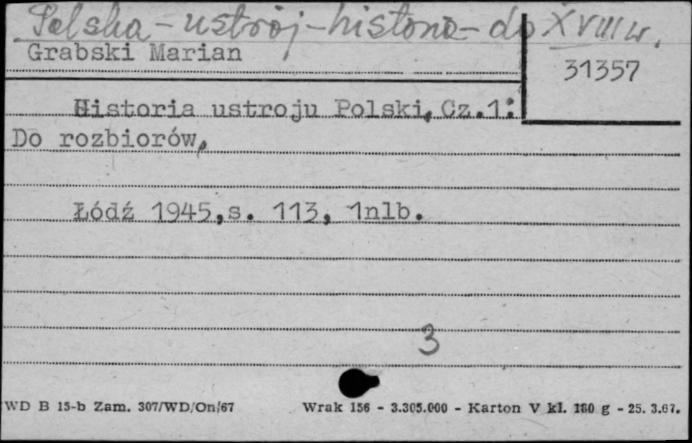 Polska - ustrój - historia - do XVIII w.
Grabski Marian
31357
Historia ustroju Polski, Cz.1:
Do rozbiorów,
Łódź 1945,s. 113, 1nlb.
3
WD B 15-b Zam. 307/WD/On/67 Wrak 156 - 3.305.000 - Karton V kl. 180 g - 25. 3.67.